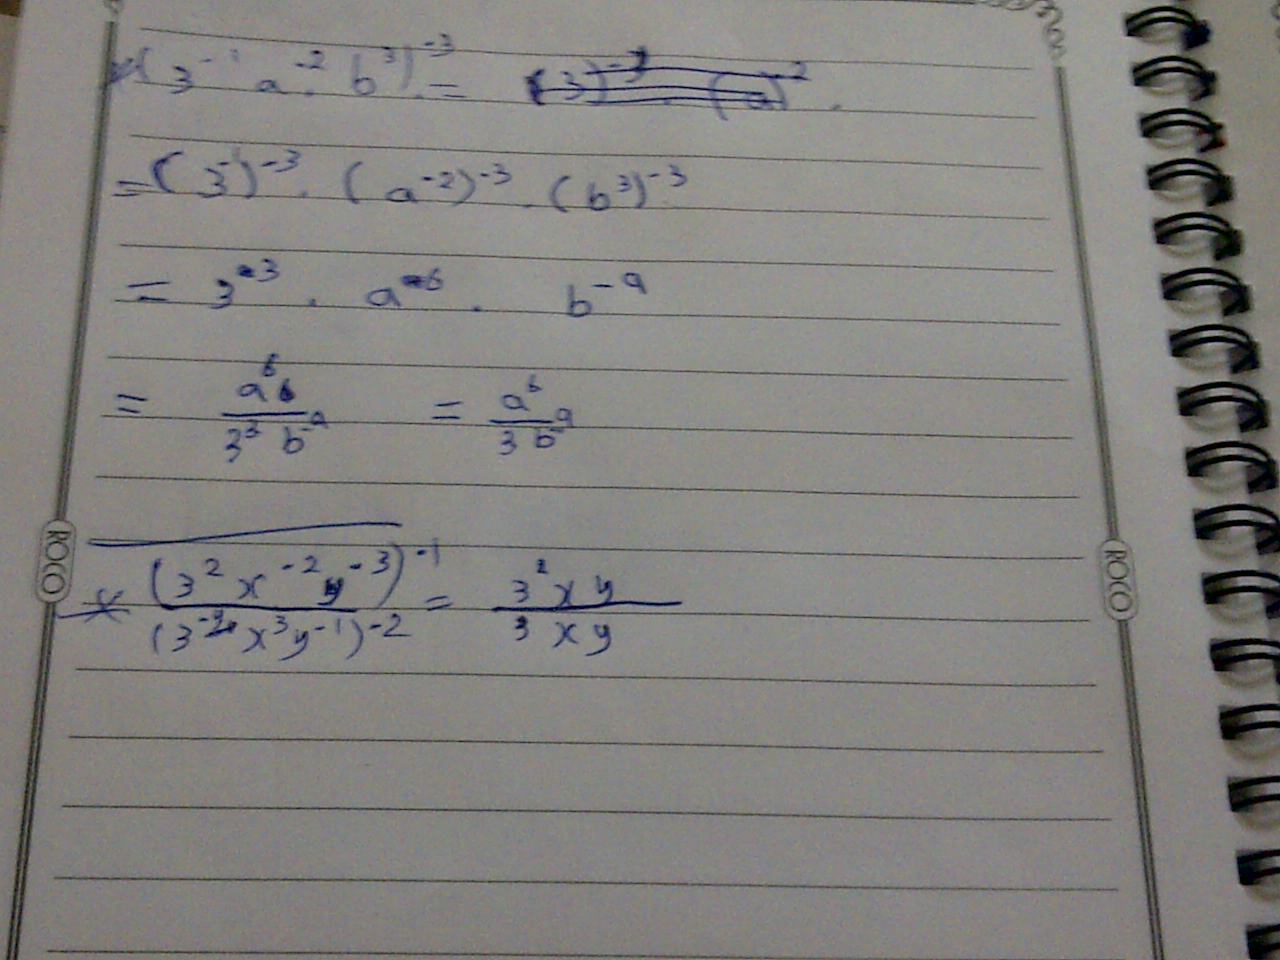 (3⁻¹ a⁻² . b³)⁻³ =
= (3⁻¹)⁻³ . (a⁻²)⁻³ . (b³)⁻³
= 3⁻³ . a⁻⁶ . b⁻⁹
= a⁶ / 3³ b⁻⁹ = a⁶ / 3 b⁻⁹
(3² x⁻² y⁻³)⁻¹ / (3⁻² x³ y⁻¹)⁻² = 3² x y / 3 x y
ROCO
ROCO